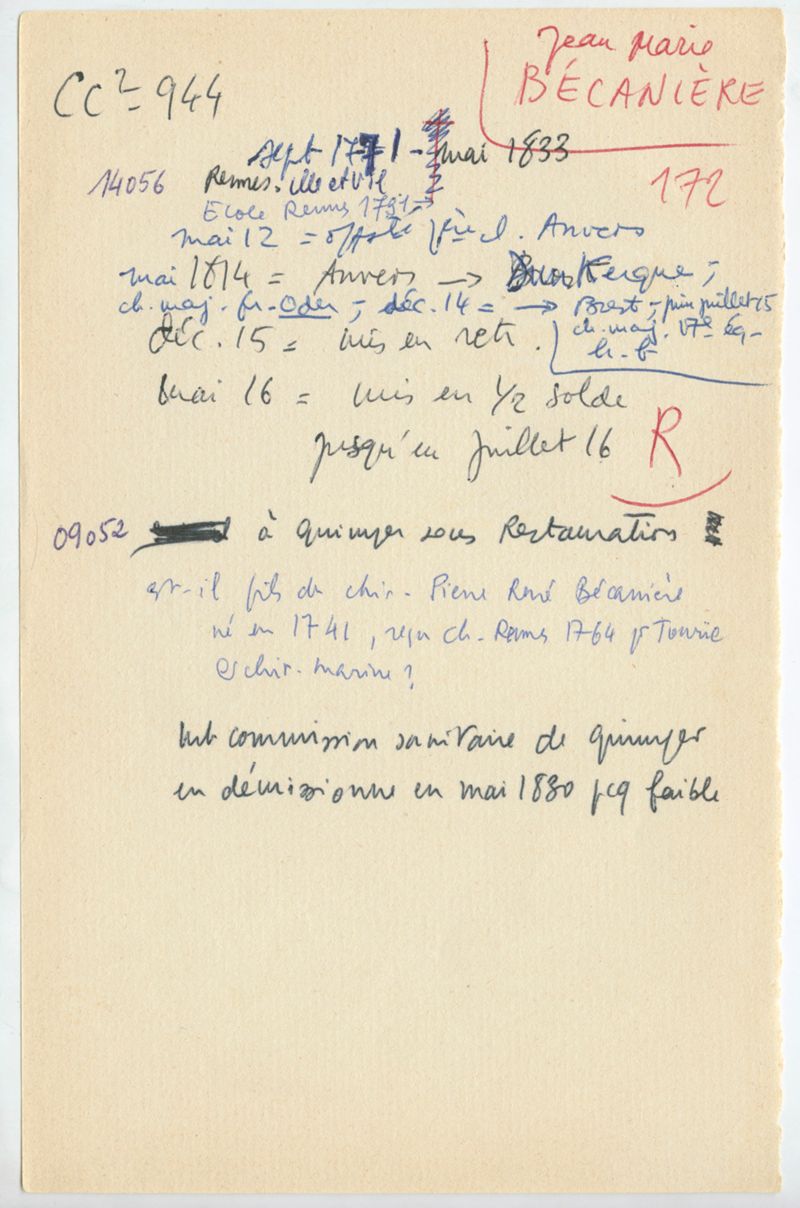 Jean Marie
BÉCANIÈRE
CC2 - 944
Sept 1771 - mai 1833
14056 Rennes. Ille et Vil
172
Ecole Rennes 1791
mai 12 = off santé 1ère cl. Anvers
mai 1814 = Anvers → Dunkerque ;
ch. maj. fr. Oder ; déc. 14 = → Brest ; juin juillet 15
ch. maj. 17e éq.
h. b
déc. 15 = mis en retr.
Mai 16 = mis en 1/2 solde
jusqu'en juillet 16
R
09052 à Quimper sous Restauration
est-il fils du chir. Pierre René Bécanière
né en 1741, reçu ch. Rennes 1764 pr Tourie
& chir. marine ?
mb commission sanitaire de Quimper
en démissionne en mai 1830 pcq faible